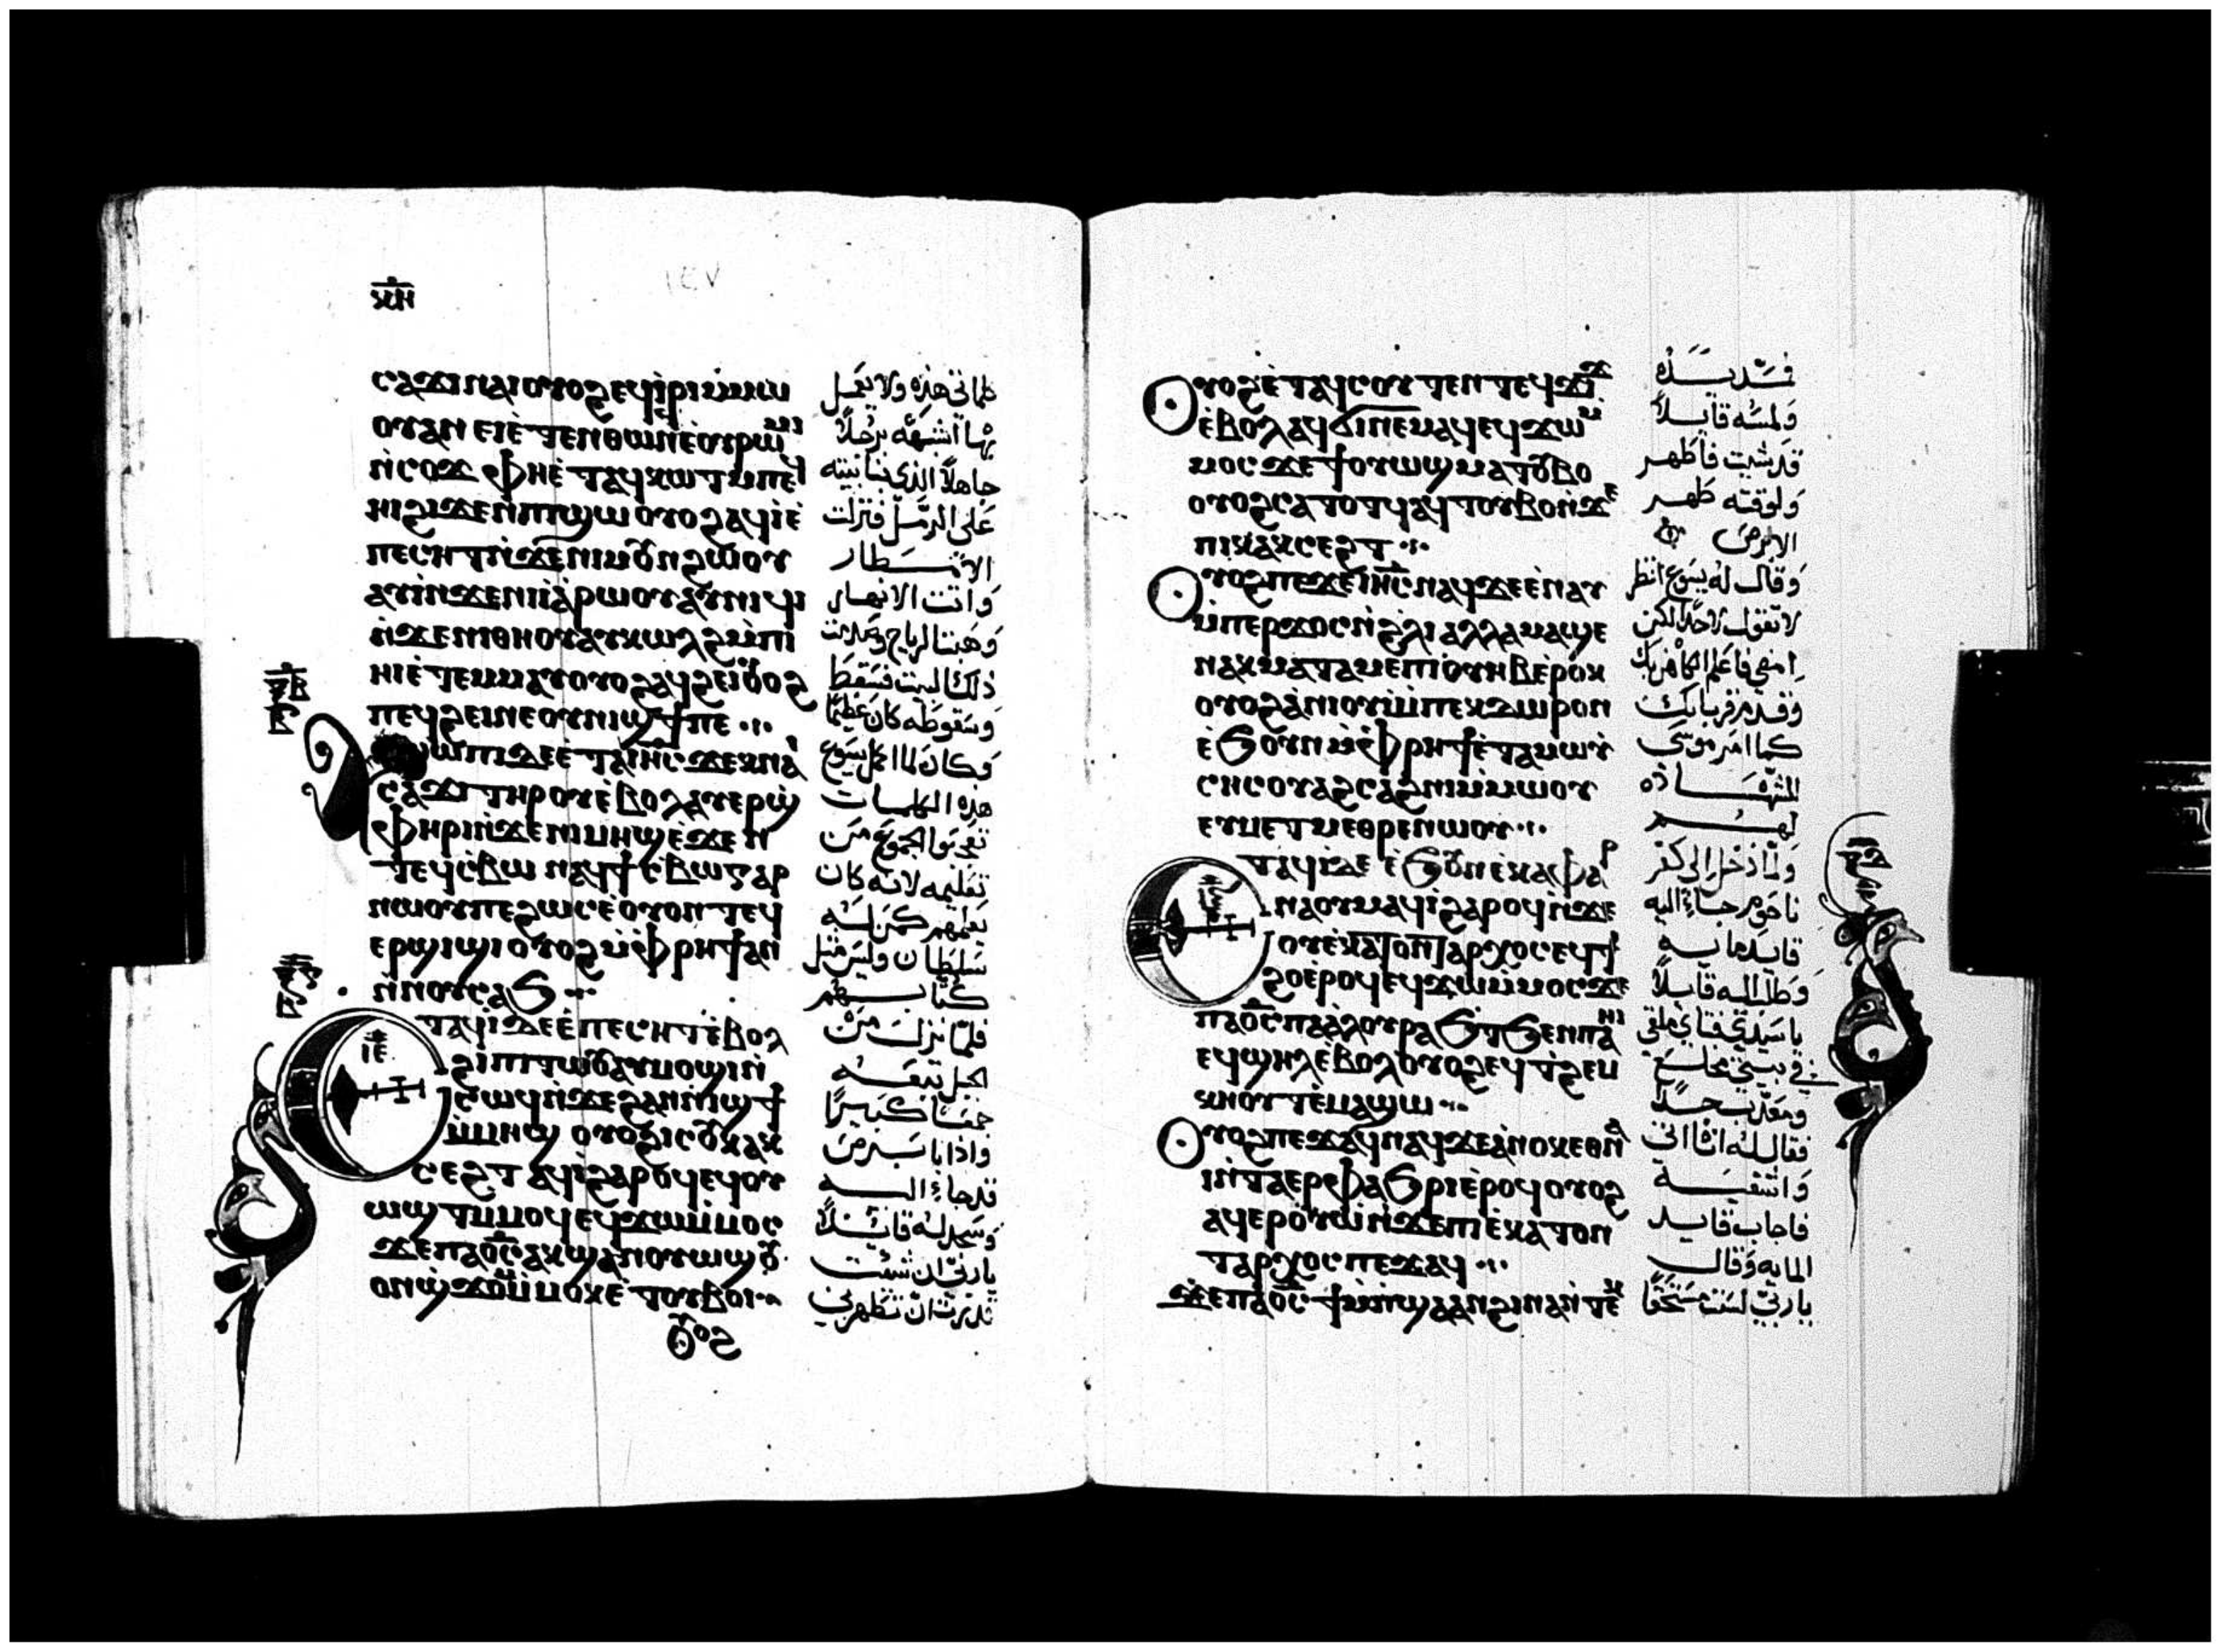 ⲥⲁϫⲓ ⲛⲁⲓ ⲟⲩⲟϩ ⲉϥⲓ̀ⲣⲓ ⲙ̀ⲙⲱ
ⲟⲩ ⲁⲛ ⲉⲓⲉ̀ⲧⲉⲛⲑⲱⲛϥ ⲉ̀ⲟⲩⲣⲱⲙⲓ
ⲛ̀ⲥⲟϫ ⲫⲏⲉ̀ⲧⲁϥⲕⲱⲧ ⲙ̀ⲡⲉϥ
ⲏⲓ ϩⲓϫⲉⲛ ⲡⲓϣⲱ ⲟⲩⲟϩ ⲁϥⲓ̀ ⲉ̀
ⲡⲉⲥⲏⲧ ⲛ̀ϫⲉ ⲛⲓⲙⲟⲩⲛϩⲱⲟⲩ
ⲁⲩⲓ̀ ⲛ̀ϫⲉ ⲛⲓⲓⲁ̀ⲣⲱⲟⲩ ⲁⲩⲛⲓϥⲓ
ⲛ̀ϫⲉ ⲛⲓⲑⲏⲟⲩ ⲁⲩⲕⲱⲗϩ ⲙ̀ⲡⲓ
ⲏⲓ ⲉ̀ⲧⲉⲙⲙⲁⲩ ⲟⲩⲟϩ ⲁϥϩⲉⲓ ⲟⲩⲟϩ
ⲡⲉϥϩⲉⲓ ⲛⲉ ⲟⲩⲛⲓϣϯ ⲡⲉ
ϣⲱⲡⲓ ⲇⲉ ⲉ̀ⲧⲁ ⲓⲏ̅ⲥ̅ ϫⲉⲕ ⲛⲁⲓ
ⲥⲁϫⲓ ⲧⲏⲣⲟⲩ ⲉ̀ⲃⲟⲗ ⲁⲩⲉⲣϣ
ⲫⲏⲣⲓ ⲛ̀ϫⲉ ⲛⲓⲙⲏϣ ⲉ̀ϫⲉⲛ
ⲧⲉϥⲥⲃⲱ ⲛⲁϥϯⲥⲃⲱ ⲅⲁⲣ
ⲛⲱⲟⲩ ⲡⲉ ϩⲱⲥ ⲉ̀ⲟⲩⲟⲛ ⲧⲉϥ
ⲉⲣϣⲓϣⲓ ⲟⲩⲟϩ ⲙ̀ⲫⲣⲏϯ ⲁⲛ
ⲛ̀ⲛⲟⲩⲥⲁϧ
ⲉⲧⲁϥⲓ̀ ⲇⲉ ⲉ̀ⲡⲉⲥⲏⲧ ⲉ̀ⲃⲟⲗ
ϩⲓ ⲡⲓⲧⲱⲟⲩ ⲁⲩⲙⲟϣⲓ ⲛ̀
ⲥⲱϥ ⲛ̀ϫⲉ ϩⲁⲛⲛⲓϣϯ
ⲙ̀ⲙⲏϣ ⲟⲩⲟϩ ⲓⲥ ⲟⲩⲕⲁⲕ
ⲥⲉϩⲧ ⲁϥⲓ̀ ϩⲁⲣⲟϥ ⲉϥⲟⲩ
ⲱϣⲧ ⲙ̀ⲙⲟϥ ⲉϥϫⲱ ⲙ̀ⲙⲟⲥ
ϫⲉ ⲡⲁⲟ̅ⲥ̅ ⲁⲕϣⲁⲛⲟⲩⲱϣ ⲟⲩ
ⲟⲛϣϫⲟⲙ ⲙ̀ⲙⲟⲕ ⲉ̀ⲧⲟⲩⲃⲟⲓ
ⲟⲩⲟϩ
كلماتى هذه ولا يعمل
بها اشبهه برجلاً
جاهلاً الذى بنا بيته
على الرمل فنزلت
الامطار
واتت الانهار
وهبت الرياح وصدمت
ذلك البيت فسقط
وسقوطه كان عظيما
وكان لما اكمل يسوع
هذه الكلمات
تعجبوا الجموع من
تعليمه لانه كان
يعلمهم كمن له
سلطان وليس مثل
كتابهم
فلما نزل من
الجبل تبعه
جمعاً كبيرًا
واذا بابرص
قد جاء اليه
وسجد له قائلاً
يا ربى ان شئت
قدرت ان تطهرنى
ⲟⲩⲟϩ ⲉ̀ⲧⲁϥⲥⲟⲩⲧⲉⲛ ⲧⲉϥϫⲓϫ
ⲉ̀ⲃⲟⲗ ⲁϥϭⲓ ⲛⲉⲙⲁϥ ⲉϥϫⲱ ⲙ̀
ⲙⲟⲥ ϫⲉ ϯⲟⲩⲱϣ ⲙⲁⲧⲟⲩⲃⲟ
ⲟⲩⲟϩ ⲥⲁⲧⲟⲧϥ ⲁϥⲧⲟⲩⲃⲟ ⲛ̀ϫⲉ
ⲡⲓⲕⲁⲕⲥⲉϩⲧ
ⲟⲩⲟϩ ⲡⲉϫⲉ ⲓⲏ̅ⲥ̅ ⲛⲁϥ ϫⲉ ⲉ̀ⲛⲁⲩ
ⲙ̀ⲡⲉⲣϫⲟⲥ ⲛ̀ϩ̀ⲗⲓ ⲁⲗⲗⲁ ⲙⲁϣⲉ
ⲛⲁⲕ ⲙⲁⲧⲁⲙⲉ ⲡⲓⲟⲩⲏⲃ ⲉ̀ⲣⲟⲕ
ⲟⲩⲟϩ ⲁ̀ⲛⲓⲟⲩⲓ̀ ⲙ̀ⲡⲉⲕⲇⲱⲣⲟⲛ
ⲉ̀ϧⲟⲩⲛ ⲙ̀ⲫⲣⲏϯ ⲉ̀ⲧⲁ ⲙⲱⲩ̀
ⲥⲏⲥ ⲟⲩⲁϩⲥⲁϩⲛⲓ ⲙ̀ⲙⲱⲟⲩ
ⲉⲩⲙⲉⲧⲙⲉⲑⲣⲉ ⲛⲱⲟⲩ
ⲉⲧⲁϥⲓ̀ ⲇⲉ ⲉ̀ϧⲟⲩⲛ ⲉ̀ⲕⲁⲫⲁⲣ
ⲛⲁⲟⲩⲙ ⲁϥⲓ̀ ϩⲁⲣⲟϥ ⲛ̀ϫⲉ
ⲟⲩⲉ̀ⲕⲁⲧⲟⲛⲧⲁⲣⲭⲟⲥ ⲉϥϯ
ϩⲟ ⲉ̀ⲣⲟϥ ⲉϥϫⲱ ⲙ̀ⲙⲟⲥ ϫⲉ
ⲡⲁⲟ̅ⲥ̅ ⲡⲁⲁ̀ⲗⲟⲩ ⲣⲁϧⲧ ϧⲉⲛ ⲡⲁⲏⲓ
ⲉϥϣⲏⲗ ⲉ̀ⲃⲟⲗ ⲟⲩⲟϩ ⲉϥⲧ̀ϩⲉⲙ
ⲕⲏⲟⲩⲧ ⲉ̀ⲙⲁϣⲱ
ⲟⲩⲟϩ ⲡⲉϫⲁϥ ⲛⲁϥ ϫⲉ ⲁ̀ⲛⲟⲕ ⲉⲑⲛⲁ
ⲓ̀ ⲛ̀ⲧⲁⲉⲣⲫⲁϧⲣⲓ ⲉ̀ⲣⲟϥ ⲟⲩⲟϩ
ⲁϥⲉⲣⲟⲩⲱ̀ ⲛ̀ϫⲉ ⲡⲓⲉ̀ⲕⲁⲧⲟⲛ
ⲧⲁⲣⲭⲟⲥ ⲡⲉϫⲁϥ
ϫⲉ ⲡⲁⲟ̅ⲥ̅ ϯⲙ̀ⲡ̀ϣⲁ ⲁⲛ ϩⲓⲛⲁ ⲛ̀ⲧⲉⲕ
فمد يده
ولمسه قايلاً
قد شيت فاطهر
ولوقته طهر
الابرص
وقال له يسوع انظر
لا تقول لاحد لكن
امضى فاعلم الكاهن بك
وقدم قربانك
كما امر موسى
للشهاده
لهم
ولما دخل الى كفر
ناحوم جاء اليه
قايد مايه
وطلب اليه قايلاً
يا سيدى فتاى ملقى
فى بيتى مخلع
ومعذب جداً
فقال له انا اتى
واشفيه
فاجاب قايد
المايه وقال
يا ربى لست مستحقا